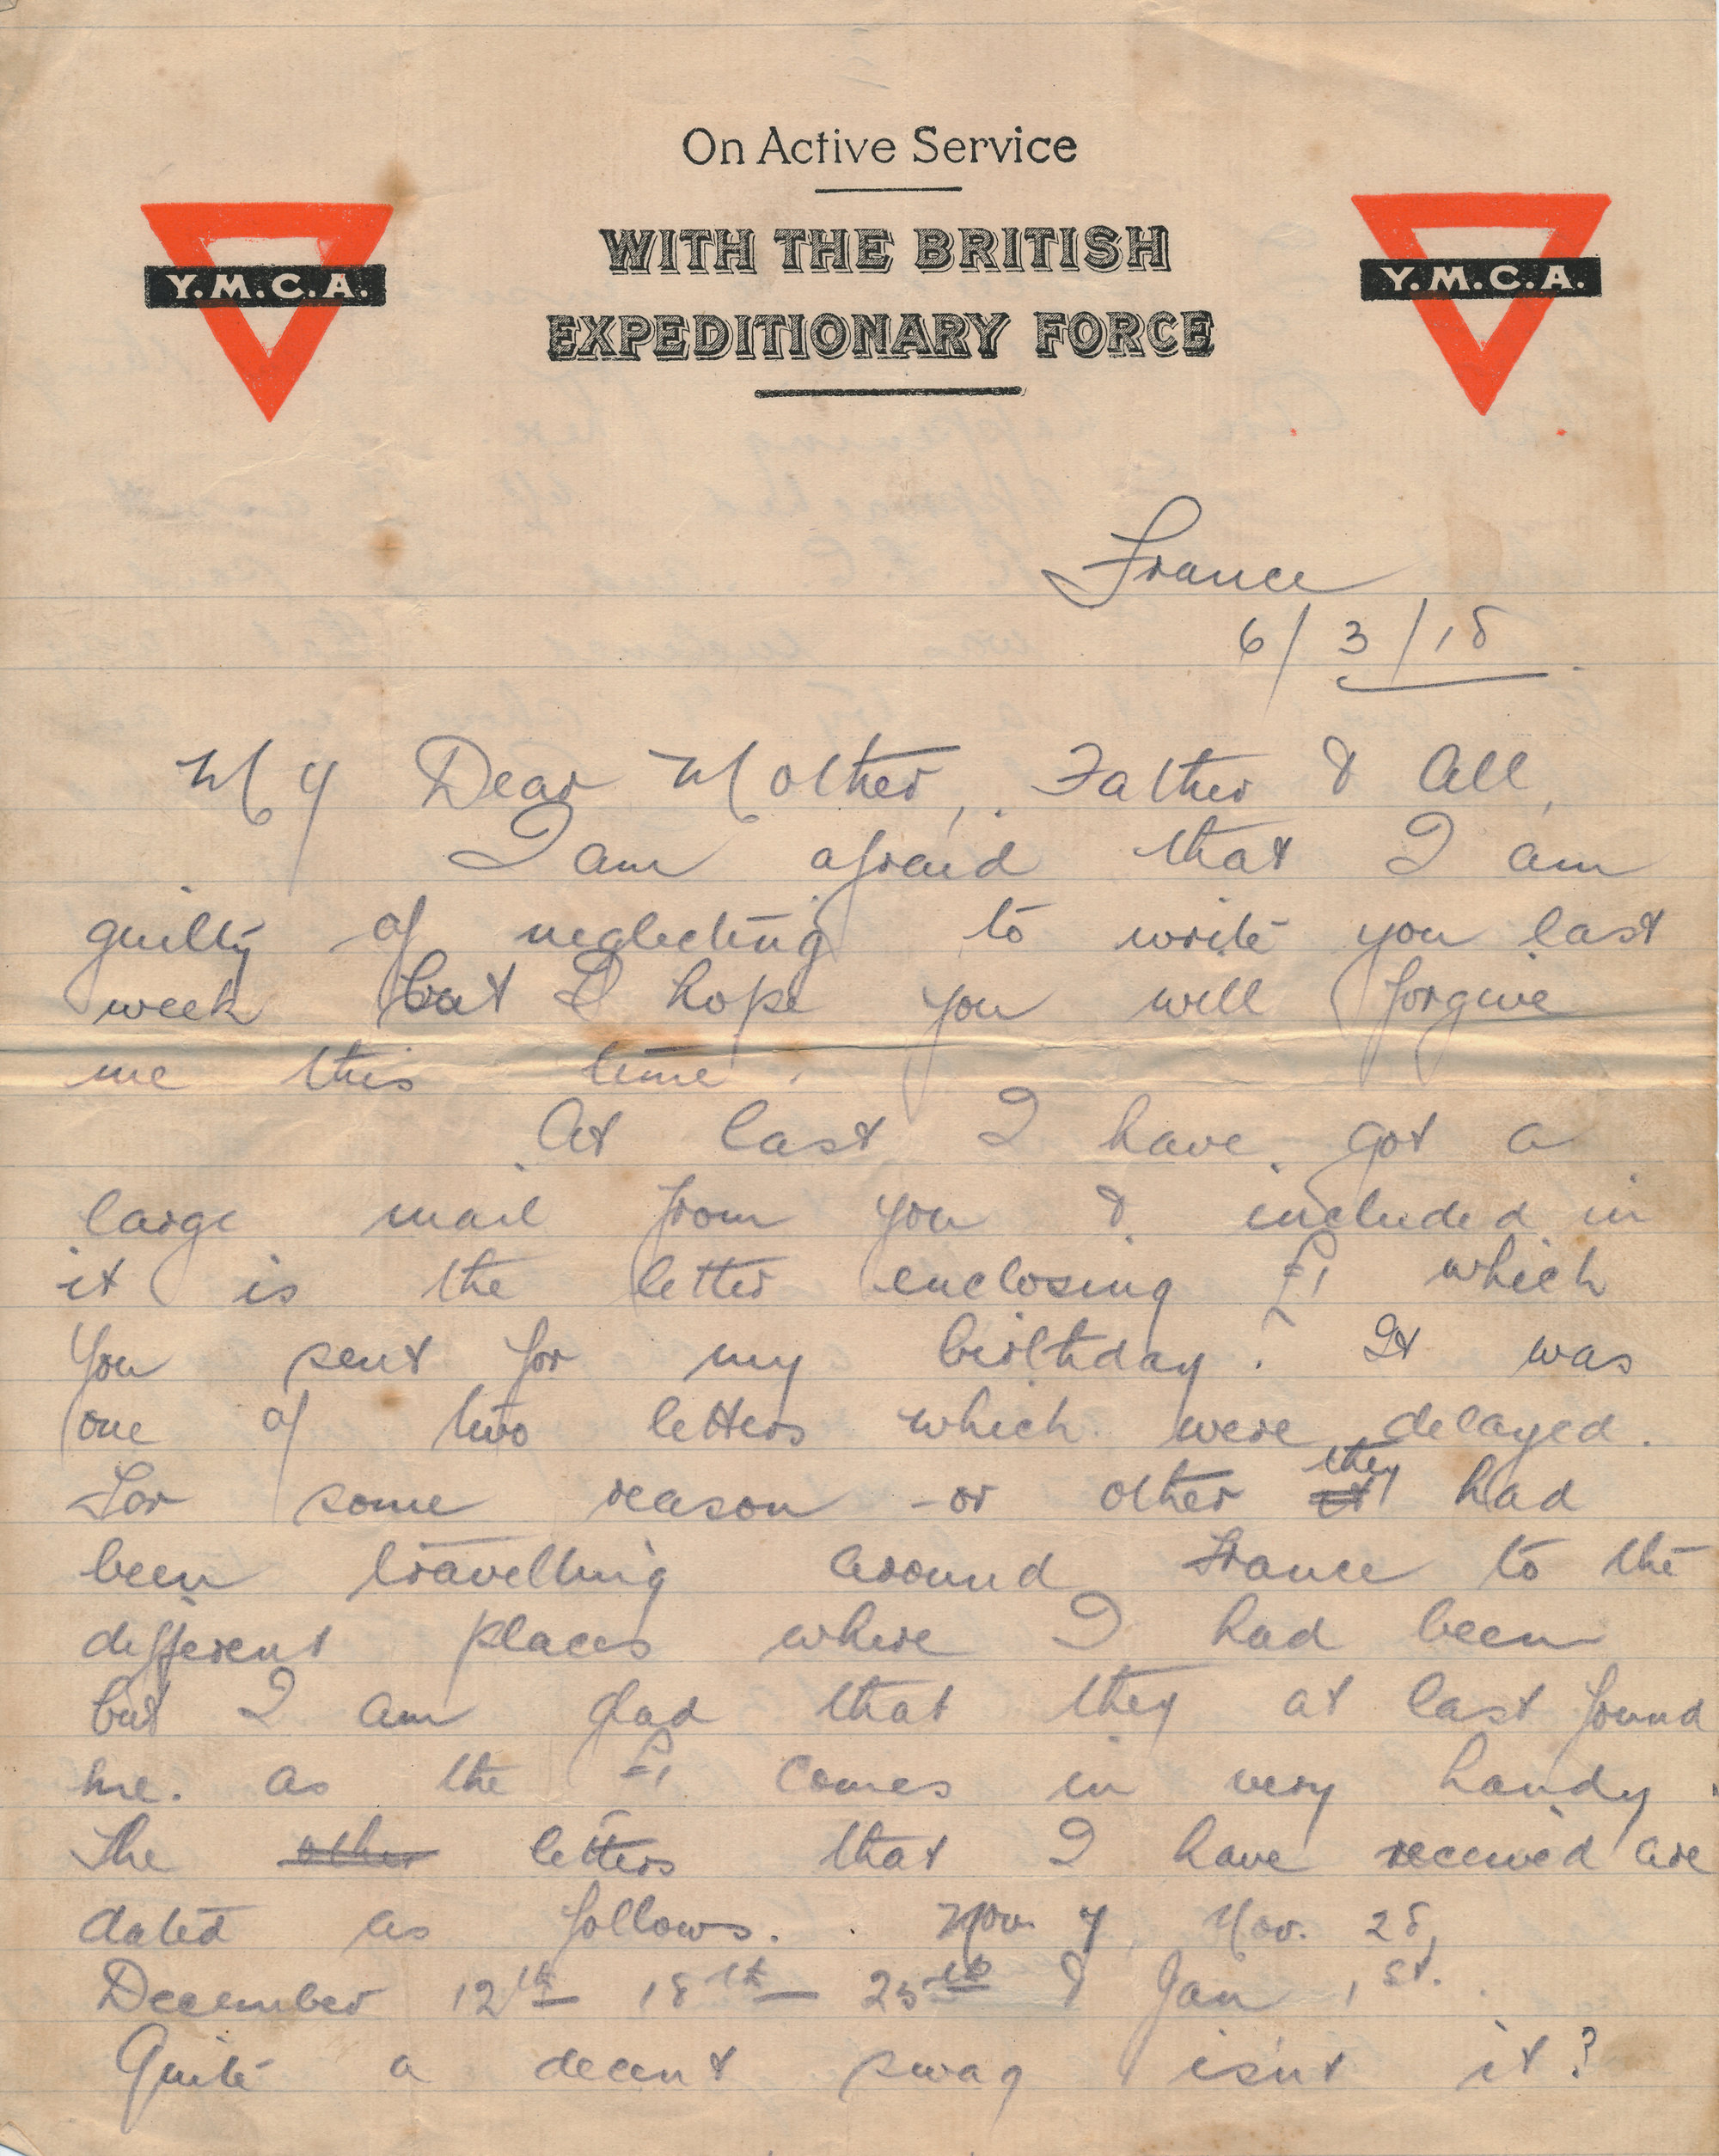 On Active Service
WITH THE BRITISH
EXPEDITIONARY FORCE
Y.M.C.A.
Y.M.C.A.
France
6/3/18.
My Dear Mother, Father & All,
I am afraid that I am
guilty of neglecting to write you last
week but I hope you will forgive
me this time.
At last I have got a
large mail from you & included in
it is the letter enclosing £1 which
you sent for my birthday. It was
one of two letters which were delayed.
For some reason or other it they had
been travelling around France to the
different places where I had been
but I am glad that they at last found
me. as the £1 comes in very handy.
The other letters that I have received are
dated as follows. Nov. 7, Nov. 28,
December 12th 18th 25th & Jan 1st.
Quite a decent swag isn't it?